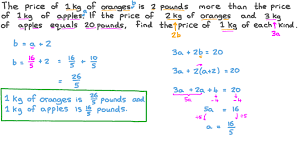 The price of 1 kg of oranges is 2 pounds more than the price
b
of 1 kg of apples. If the price of 2 kg of oranges and 3 kg
a
of apples equals 20 pounds, find the price of 1 kg of each kind.
2b
3a
b = a + 2
b = 16/5 + 2 = 16/5 + 10/5
= 26/5
1 kg of oranges is 26/5 pounds and
1 kg of apples is 16/5 pounds.
3a + 2b = 20
3a + 2(a+2) = 20
3a + 2a + 4 = 20
5a -4 -4
5a = 16
÷5 ÷5
a = 16/5